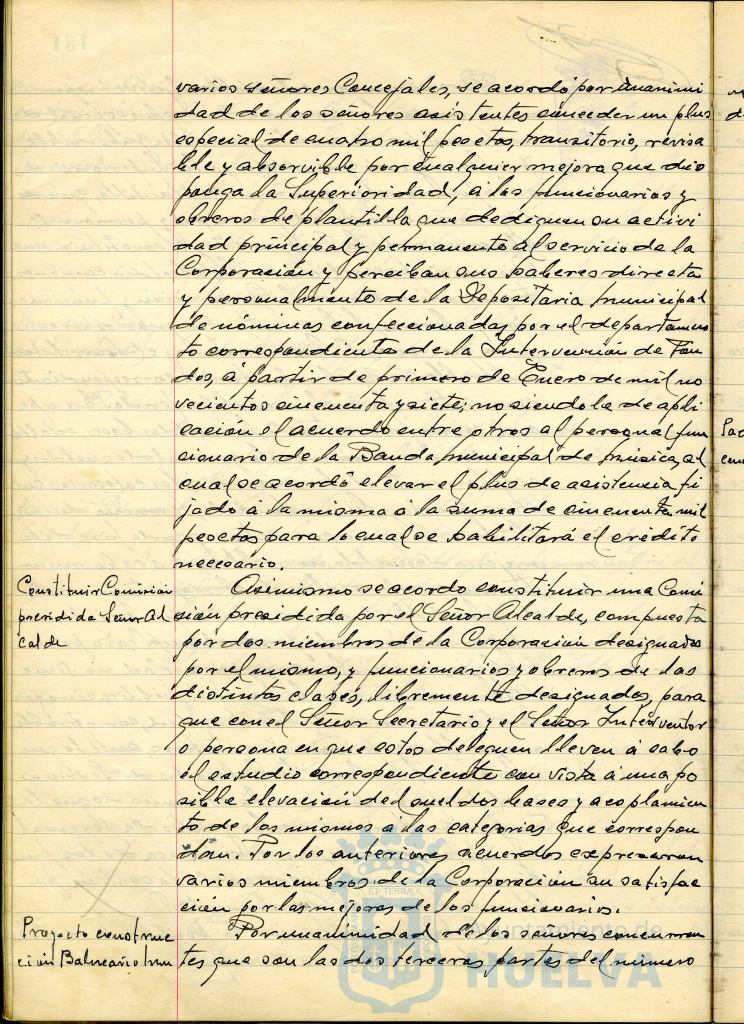 varios señores Concejales, se acordó por unanimi
dad de los señores asistentes conceder un plus
especial de cuatro mil pesetas, transitorio, revisa
ble y absorvible por cualquier mejora que dis
ponga la Superioridad, á los funcionarios y
obreros de plantilla que dediquen su activi
dad principal y permanente al servicio de la
Corporación y perciban sus haberes directa
y personalmente de la Depositaria municipal
de nóminas confeccionadas por el departamen
to correspondiente de la Intervención de Fon
dos, á partir de primero de Enero de mil no
vecientos cincuenta y siete; no siendole de apli
cación el acuerdo entre otros al personal fun
cionario de la Banda municipal de música, al
cual se acordó elevar el plus de asistencia fi
jado á la misma á la suma de cincuenta mil
pesetas para lo cual se habilitará el crédito
necesario.
Constituir Comisión
presidida Señor Al
calde
Asimismo se acordo constituir una Comi
sión presidida por el Señor Alcalde, compuesta
por dos miembros de la Corporación designados
por el mismo, y funcionarios y obreros de las
distintas clases, libremente designados, para
que con el Señor Secretario y el Señor Interventor
o persona en que estos deleguen lleven á cabo
el estudio correspondiente con vista á una po
sible elevación del sueldos bases y acoplamien
to de los mismos á las categorias que correspon
dan. Por los anteriores acuerdos expresaron
varios miembros de la Corporación su satisfac
ción por las mejoras de los funcionarios.
Proyecto construc
ción Balneario
Por unanimidad de los señores concurren
tes que son las dos terceras partes del número
HUELVA